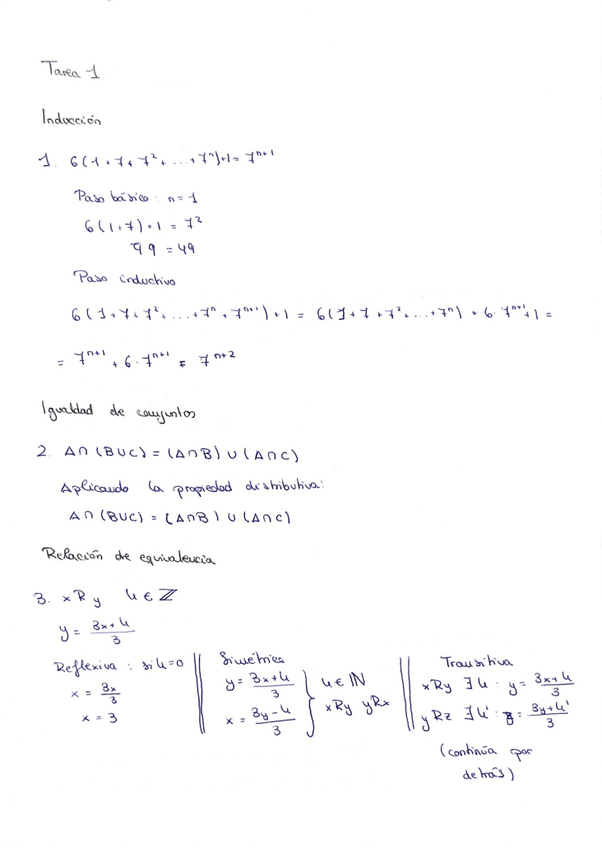 Tarea 1
Inducción
1. 6(1+7+7²+...+7ⁿ)+1=7ⁿ⁺¹
Paso básico: n=1
6(1+7)+1=7²
49=49
Paso inductivo
6(1+7+7²+...+7ⁿ+7ⁿ⁺¹)+1=6(1+7+7²+...+7ⁿ)+6·7ⁿ⁺¹+1=
=7ⁿ⁺¹+6·7ⁿ⁺¹=7ⁿ⁺²
Igualdad de conjuntos
2. A∩(B∪C)=(A∩B)∪(A∩C)
Aplicando la propiedad distributiva:
A∩(B∪C)=(A∩B)∪(A∩C)
Relación de equivalencia
3. xRy k∈ℤ
y=(3x+k)/3
Reflexiva: si k=0
x=3x/3
x=3
Simétrica
y=(3x+k)/3
x=(3y-k)/3
k∈ℕ
xRy yRx
Transitiva
xRy ∃k: y=(3x+k)/3
yRz ∃k': z=(3y+k')/3
(continúa por
detrás)